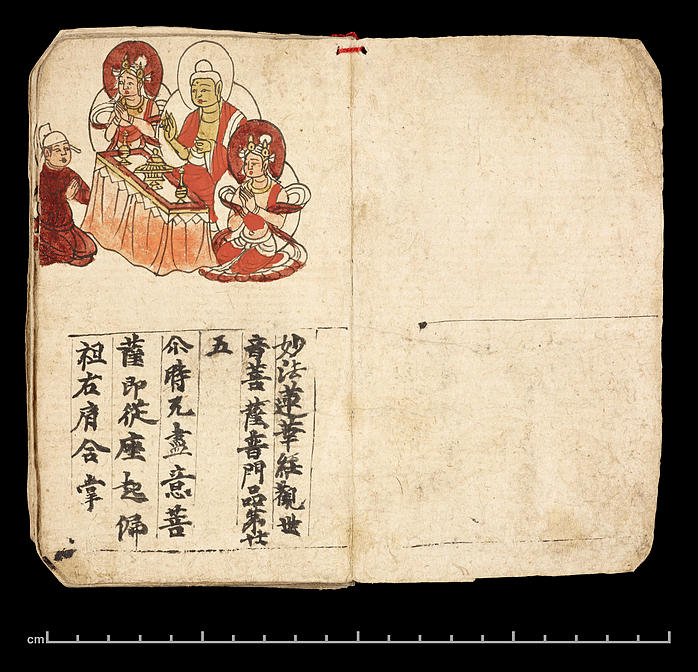 妙法蓮華經觀世
音菩薩普門品苐廿
五
尒時无盡意菩
薩即從座起偏
袒右肩合掌
cm